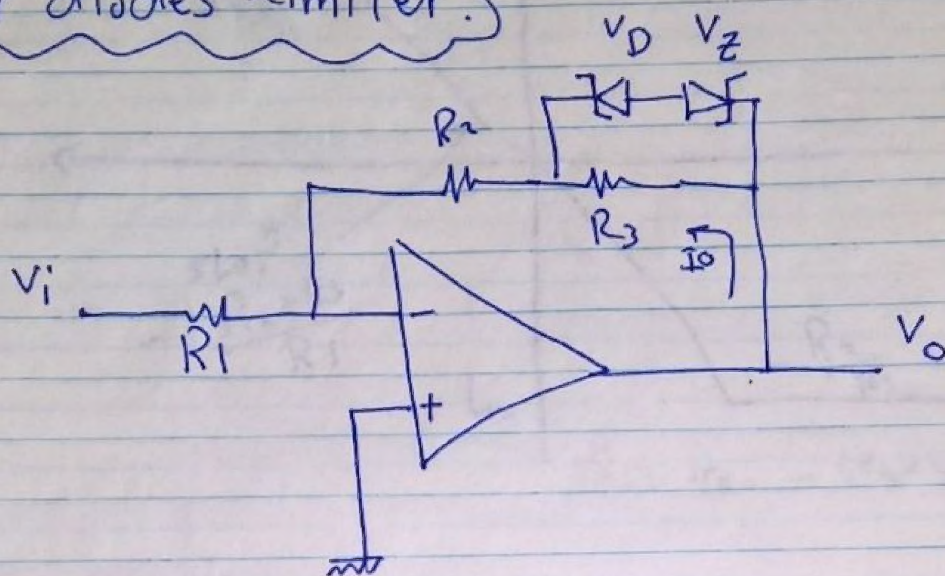 diodes limiter.
VD VZ
R2
R3
I0
Vi
R1
-
+
Vo